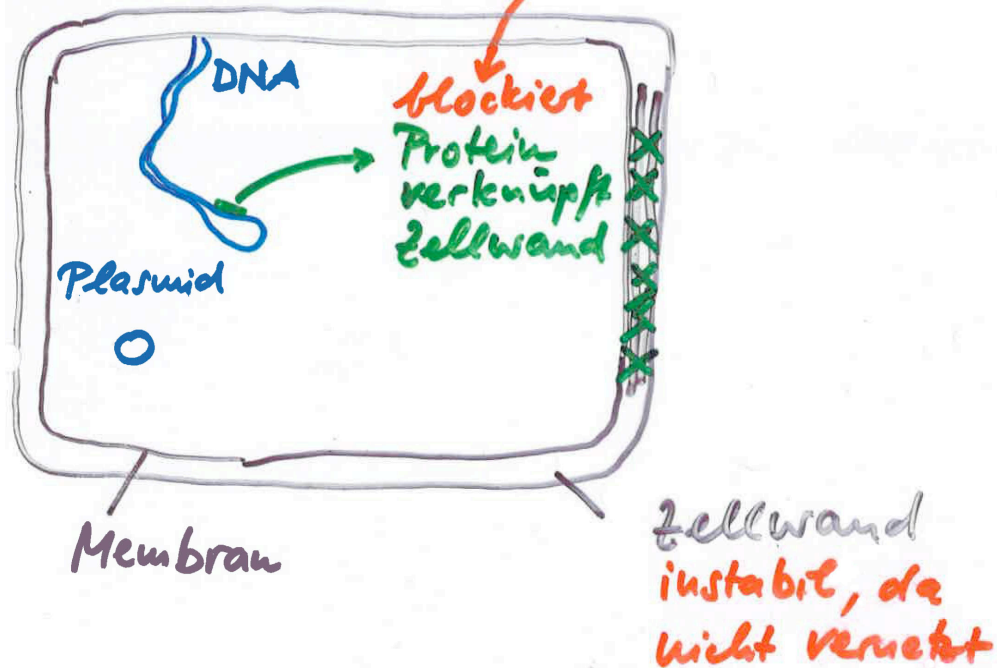 DNA
blockiert
Protein
verknüpft
Zellwand
Plasmid
Membran
Zellwand
instabil, da
nicht vernetzt